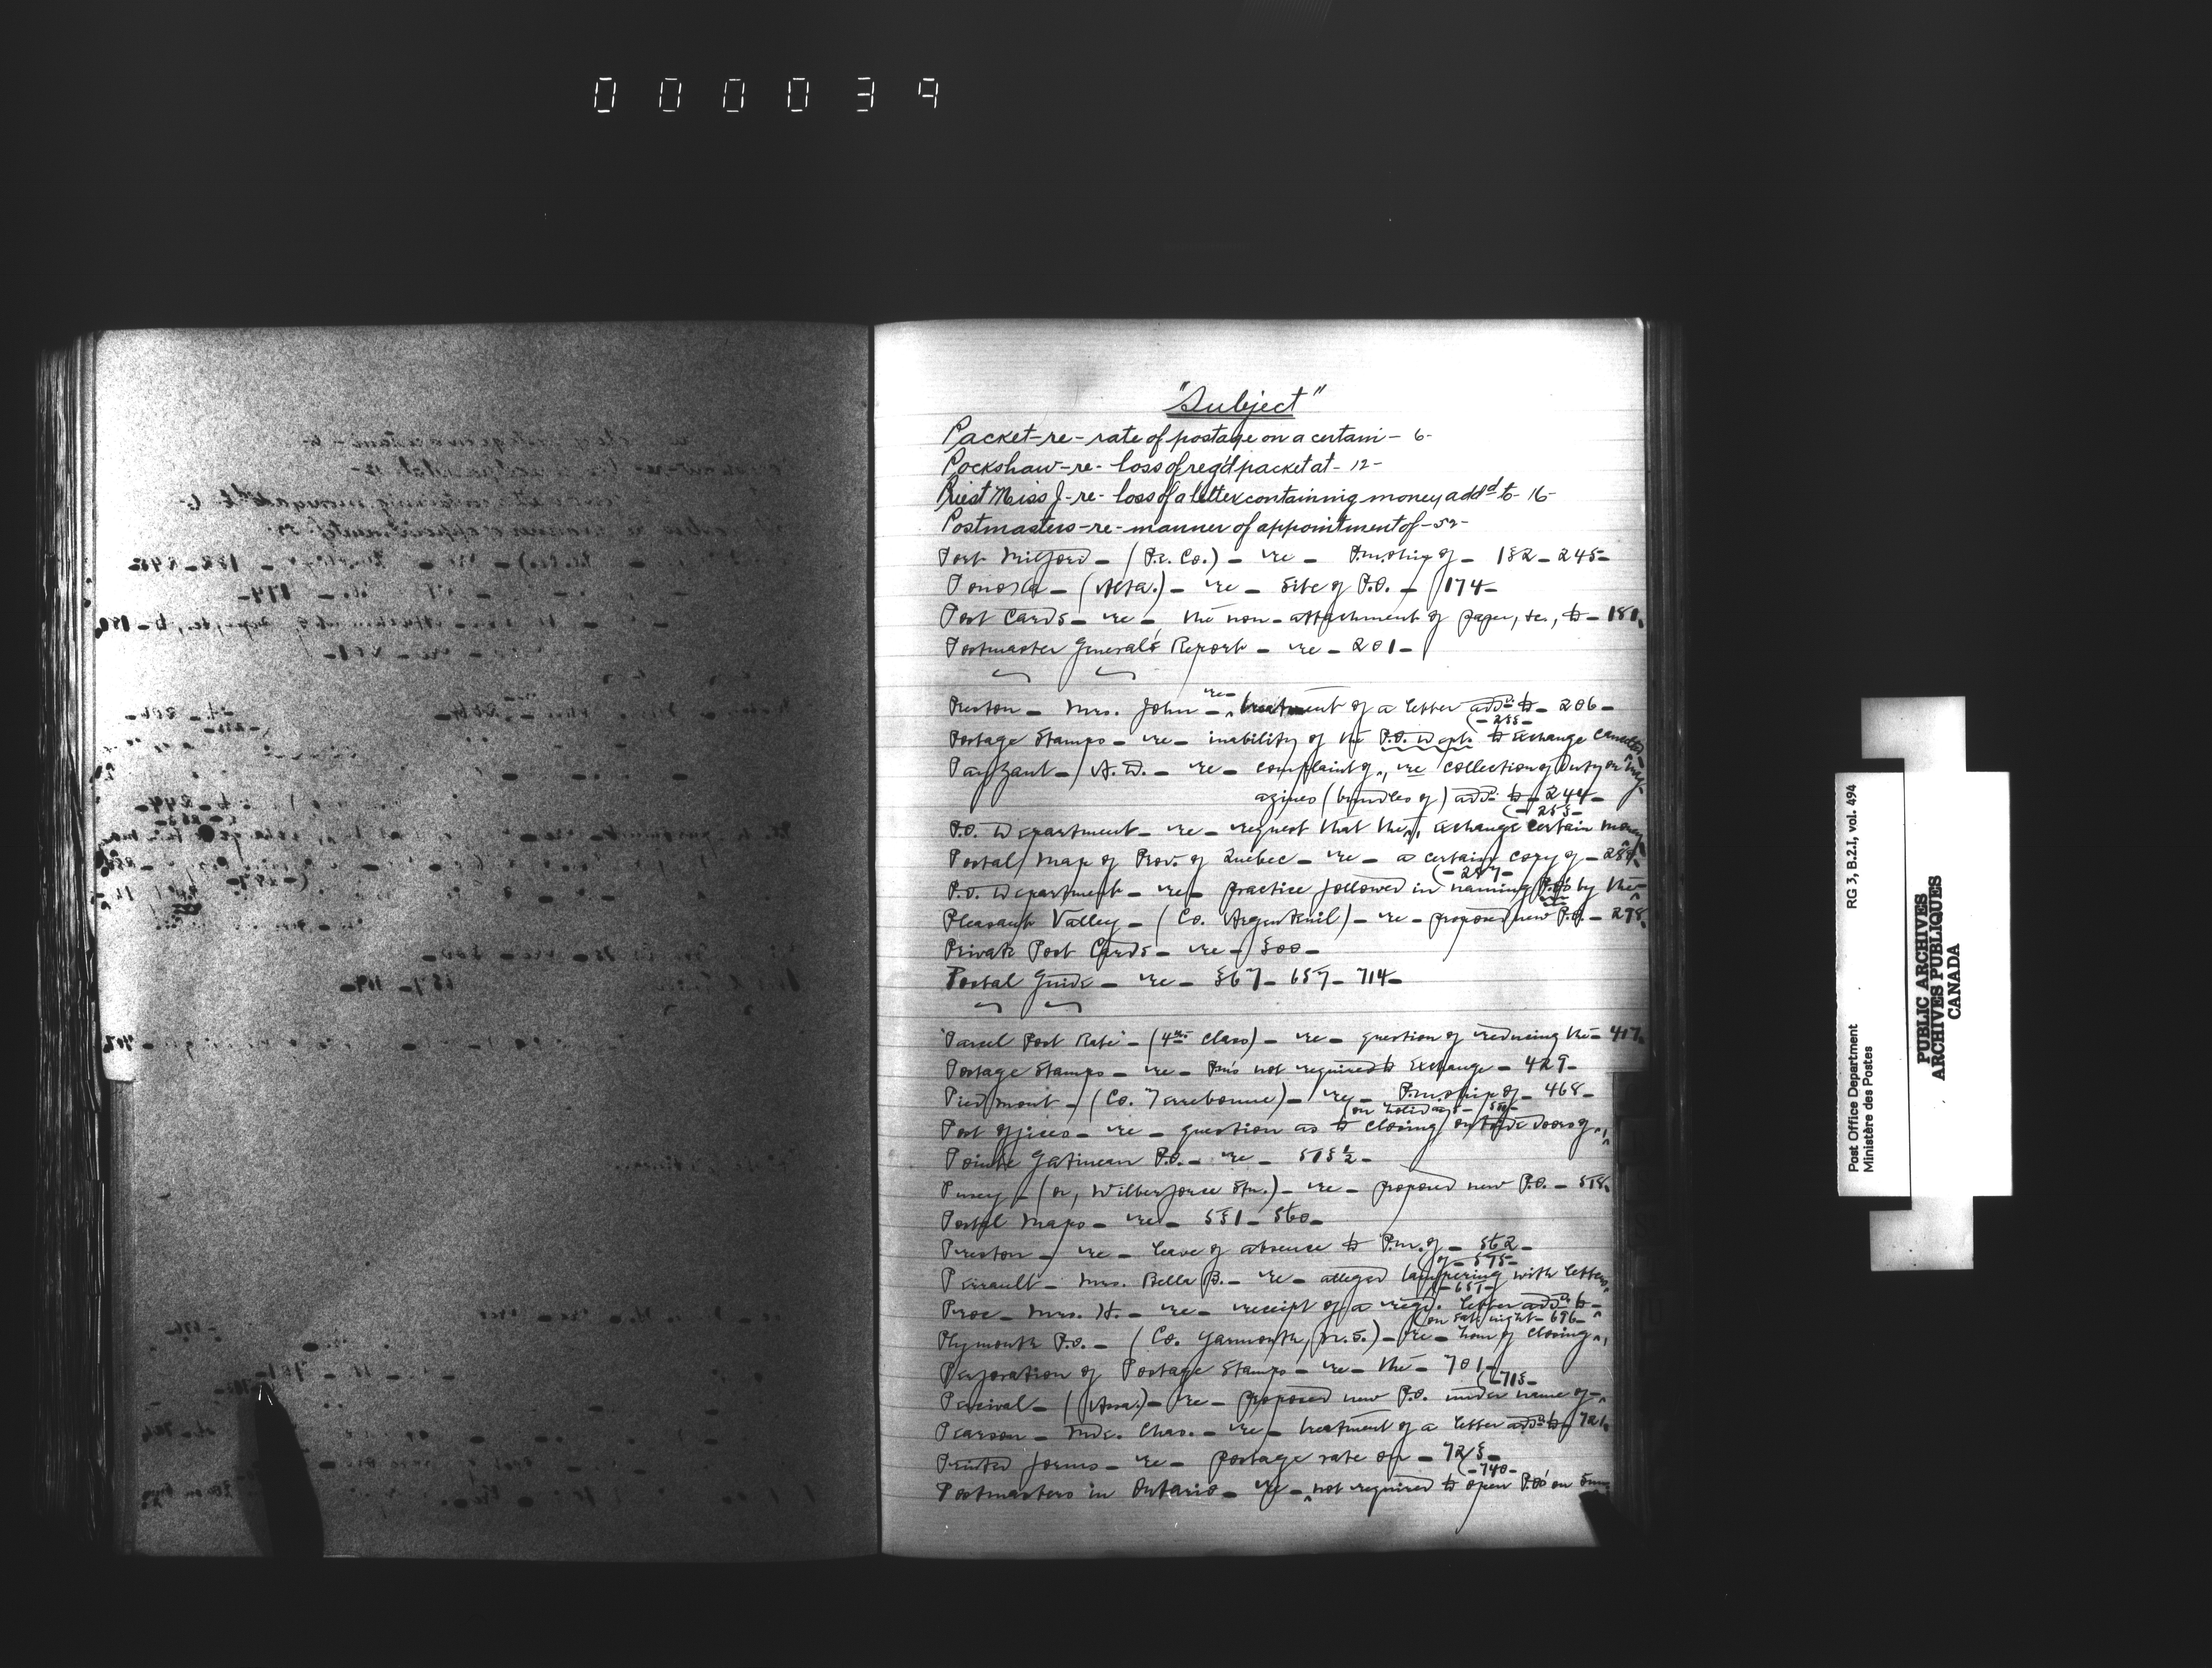 000039
"Subject"
Packet-re-rate of postage on a certain- 6-
Pockshaw-re-loss of reg'd packet at-12-
Priest Miss J-re-loss of a letter containing money addd to-16-
Postmasters-re-manner of appointment of-52-
Port Milford-(P.E. Co.)-re-P.m.ship of-132-245-
Ponoka-(Alta.)-re-site of P.O.-174-
Post Cards-re-the non-attachment of paper, &c., to-181
Postmaster General's Report-re-201-
Preston-Mrs. John-re-treatment of a letter addd to-206-
Postage Stamps-re-inability of the P.O. Dept. to exchange cancelled
Payzant-A.D.-re-complaint of, re collection of duty on mag-
azines (bundles of) addd to-244-
P.O. Department-re-request that the, exchange certain money
Postal Map of Prov. of Quebec-re-a certain copy of-
(-287-
P.O. Department-re-practice followed in naming P.O's by the-
Pleasant Valley-(Co. Argenteuil)-re-proposed new P.O.-298
Private Post Cards-re-300-
Postal Guide-re-367-657-714-
'Parcel Post Rate'-(4th Class)-re-question of reducing the-417
Postage Stamps-re-Pm's not required to exchange-429-
Piedmont-(Co. Terrebonne)-re-P.m.ship of-468-
(on holidays-
Post Offices-re-question as to closing outside doors of-
Pointe Gatineau P.O.-re-515½-
Pusey-(or, Wilberforce Stn.)-re-proposed new P.O.-518
Postal Maps-re-531-560-
Preston-re-leave of absence to P.m. of-562-
of-575-
Perrault-Mrs. Bella B.-re-alleged tampering with letters
-651-
Proe-Mrs. H.-re-receipt of a regd. letter addd to-
(on Sat. night-696-
Plymouth P.O.-(Co. Yarmouth, N.S.)-re-hour of closing
Perforation of Postage Stamps-re-the-701-
(-713-
Percival-(Assa.)-re-proposed new P.O. under name of-
Pearson-Mde. Chas.-re-treatment of a letter addd to-721
Printed Forms-re-postage rate on-723-
(-740-
Postmasters in Ontario-re-not required to open P.O's on
Post Office Department RG 3, B.2.I, vol. 494
Ministère des Postes
PUBLIC ARCHIVES
ARCHIVES PUBLIQUES
CANADA